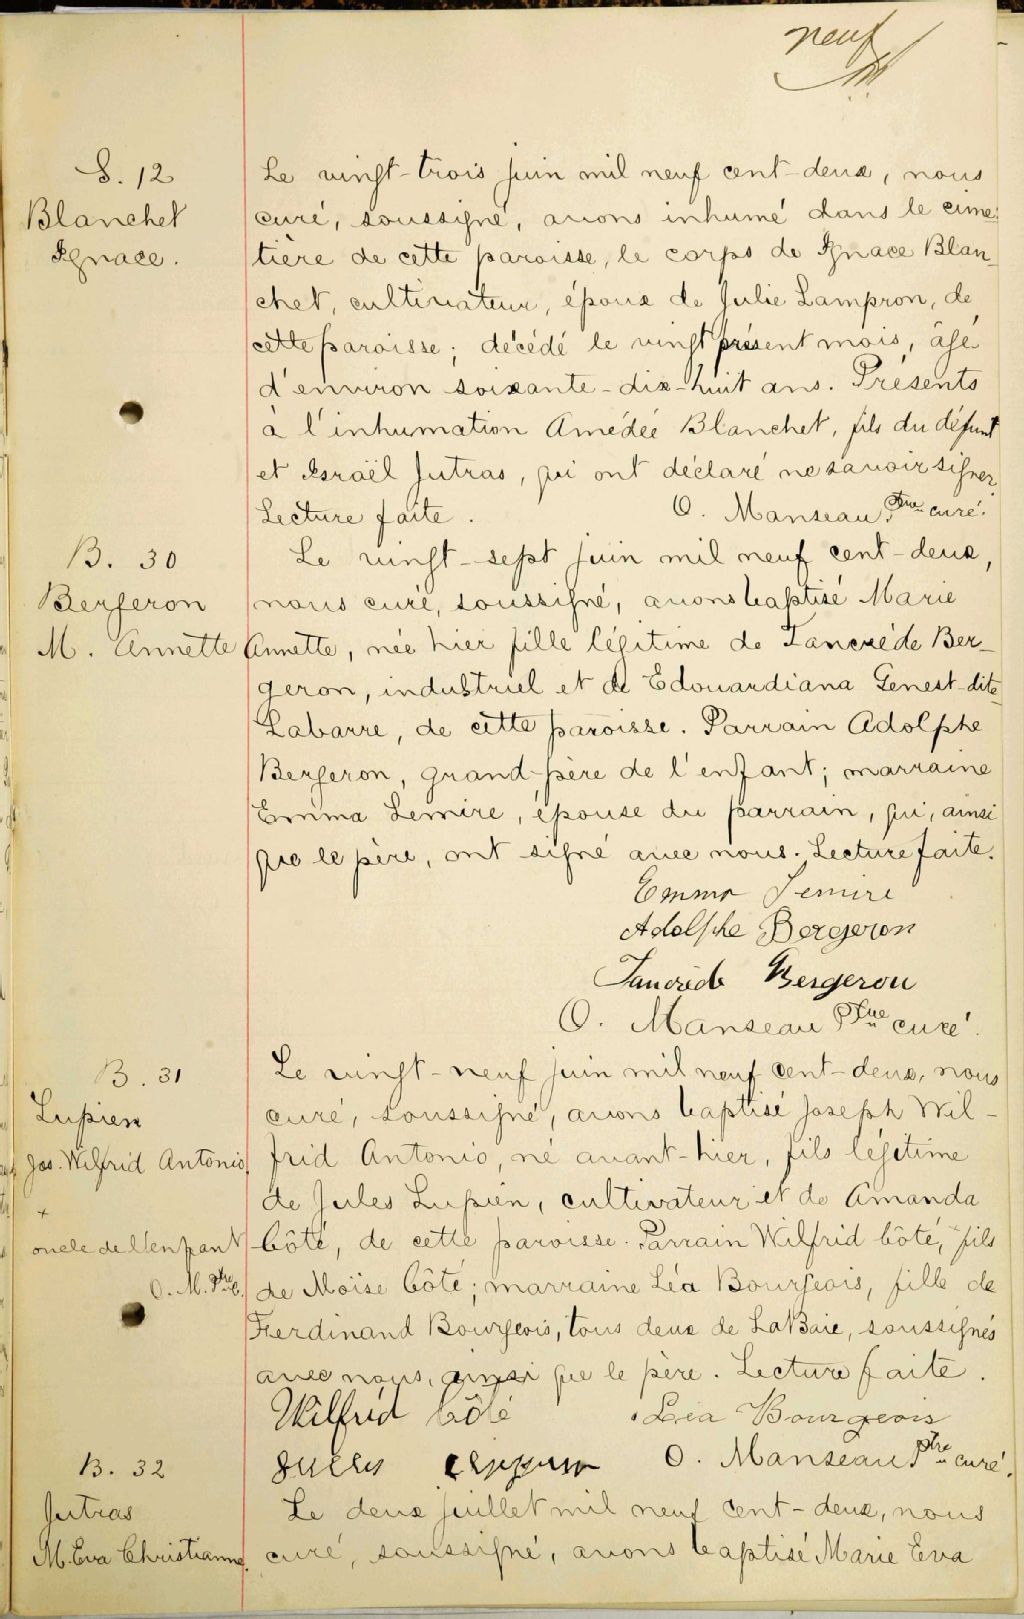 neuf
S. 12
Blanchet
Ignace.
Le vingt-trois juin mil neuf cent-deux, nous
curé, soussigné, avons inhumé dans le cime-
tière de cette paroisse, le corps de Ignace Blan-
chet, cultivateur, époux de Julie Lampron, de
cette paroisse; décédé le vingt présent mois, âgé
d'environ soixante-dix-huit ans. Présents
à l'inhumation Amédée Blanchet, fils du défunt
et Israël Jutras, qui ont déclaré ne savoir signer.
Lecture faite. O. Manseau Ptre curé.
B. 30
Bergeron
M. Annette
Le vingt-sept juin mil neuf cent-deux,
nous curé, soussigné, avons baptisé Marie
Annette, née hier fille légitime de Tancrède Ber-
geron, industriel et de Edouardiana Genest-dite-
Labarre, de cette paroisse. Parrain Adolphe
Bergeron, grand-père de l'enfant; marraine
Emma Lemire, épouse du parrain, qui, ainsi
que le père, ont signé avec nous. Lecture faite.
Emma Lemire
Adolphe Bergeron
Tancrède Bergeron
O. Manseau Ptre curé.
B. 31
Lupien
Jos. Wilfrid Antonio
+
oncle de l'enfant
O. M. Ptre C.
Le vingt-neuf juin mil neuf cent-deux, nous
curé, soussigné, avons baptisé Joseph Wil-
frid Antonio, né avant-hier, fils légitime
de Jules Lupien, cultivateur et de Amanda
Côté, de cette paroisse. Parrain Wilfrid Côté, + fils
de Moïse Côté; marraine Léa Bourgeois, fille de
Ferdinand Bourgeois, tous deux de LaBaie, soussignés
avec nous, ainsi que le père. Lecture faite.
Wilfrid Côté Léa Bourgeois
Jules O. Manseau Ptre curé.
B. 32
Jutras
M. Eva Christianne
Le deux juillet mil neuf cent-deux, nous
curé, soussigné, avons baptisé Marie Eva